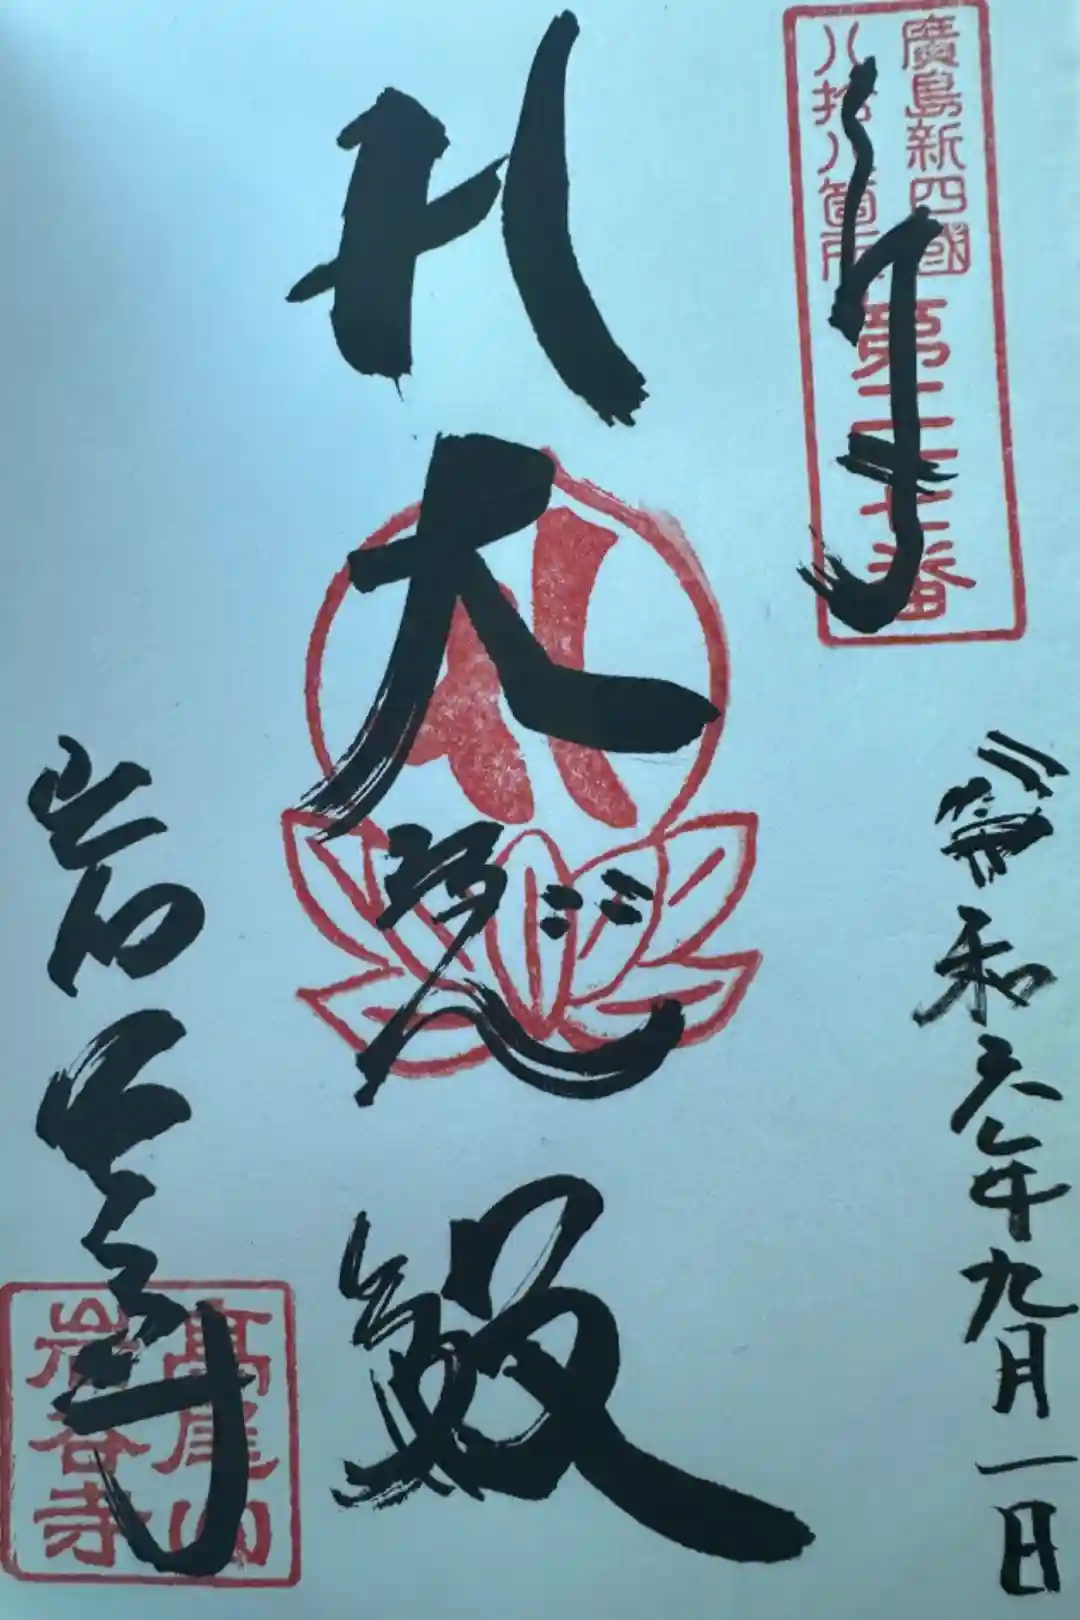 奉拝
廣島新四國
八拾八箇所
第二十七番
令和六年九月一日
大悲殿
岩谷寺
高尾山
岩谷寺